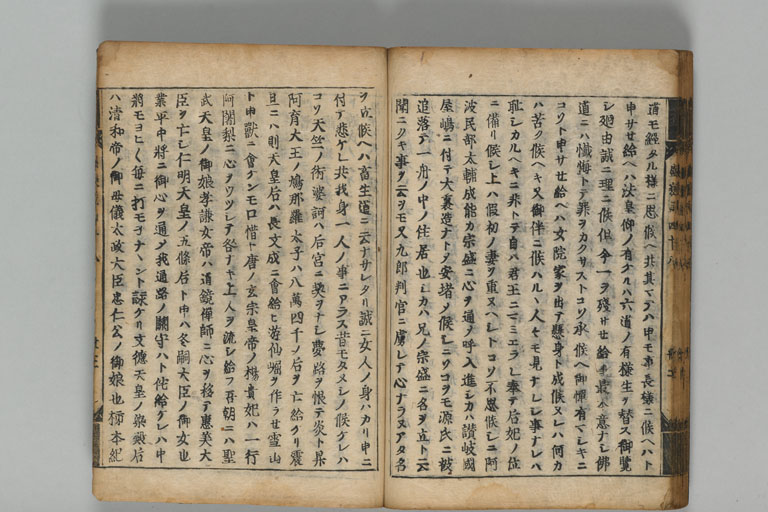 道モ經タル樣ニ思候ヘ共其マテハ申モ事長樣ニ候ヘハト
申サせ給ヘハ法皇仰ノ有ケルハ六道ノ有樣生ヲ替ス御覽
シ廻由誠ニ理ニ候但今一ヲ殘サせ給事最本意ナシ佛
道ニハ懺悔トテ罪ヲカクサストコソ承候ヘ御憚有マシキニ
コソト申サせ給ヘハ女院家ヲ出テ懸身ト成候ヌレハ何カ
ハ苦ク候ヘキ又御伴ニ候ハルヽ人々モ見ナレシ事ナレハ
恥シカルヘキニ非トテ自ハ君王ニマミエラレ奉テ后妃ノ位
ニ備リ候シ上ハ假初ノ妻ヲ重又ヘシトコソ不思候シニ阿
波民部太輔成能カ宗盛ニ心ヲ通ノ呼入進シカハ讃岐國
屋嶋ニ付テ大裏造ナトノ安堵ノ候シニツクモ源氏ニ被
追落テ一舟ノ中ノ住居也シカハ兄ノ宗盛ニ名ヲ立ト云
聞ニクキ事ヲ云ヲモ又九郎判官ニ虜レテ心ナラヌアタ名
ヲ立候ヘハ畜生道ニ云ナサレタリ誠ニ女人ノ身ハカリ申ニ
付テ悲ケレ共我身一人ノ事ニアラス昔モタメシノ候ケレハ
コソ天竺ノ術婆訶ハ后宮ニ契ヲナシ夢路ヲ恨テ炎ト昇
阿育大王ノ鳩那羅太子ハ八萬四千ノ后ヲ亡給ケリ震
旦ニハ則天皇后ハ長文成ニ會給ヒ遊仙崛ヲ作ラせ雪山
ト申獸ニ會ケンモロ惜ト唐ノ玄宗皇帝ノ楊貴妃ハ一行
阿闍梨ニ心ヲウツシテ咎ナキ上人ヲ流シ給フ吾朝ニハ聖
武天皇ノ御娘孝謙女帝ハ道鏡禪師ニ心ヲ移テ惠美大
臣ヲ亡シ仁明天皇ノ五條后ト申ハ冬嗣大臣ノ御女也
業平中將ニ御心ヲ通メ我通路ノ關守ハト侘給ケレハ中
將モヨヒ〱毎ニ打モネナヽント詠ケリ文德天皇ノ染殿后
ハ清和帝ノ御母儀太政大臣忠仁公ノ御娘也柿本紀